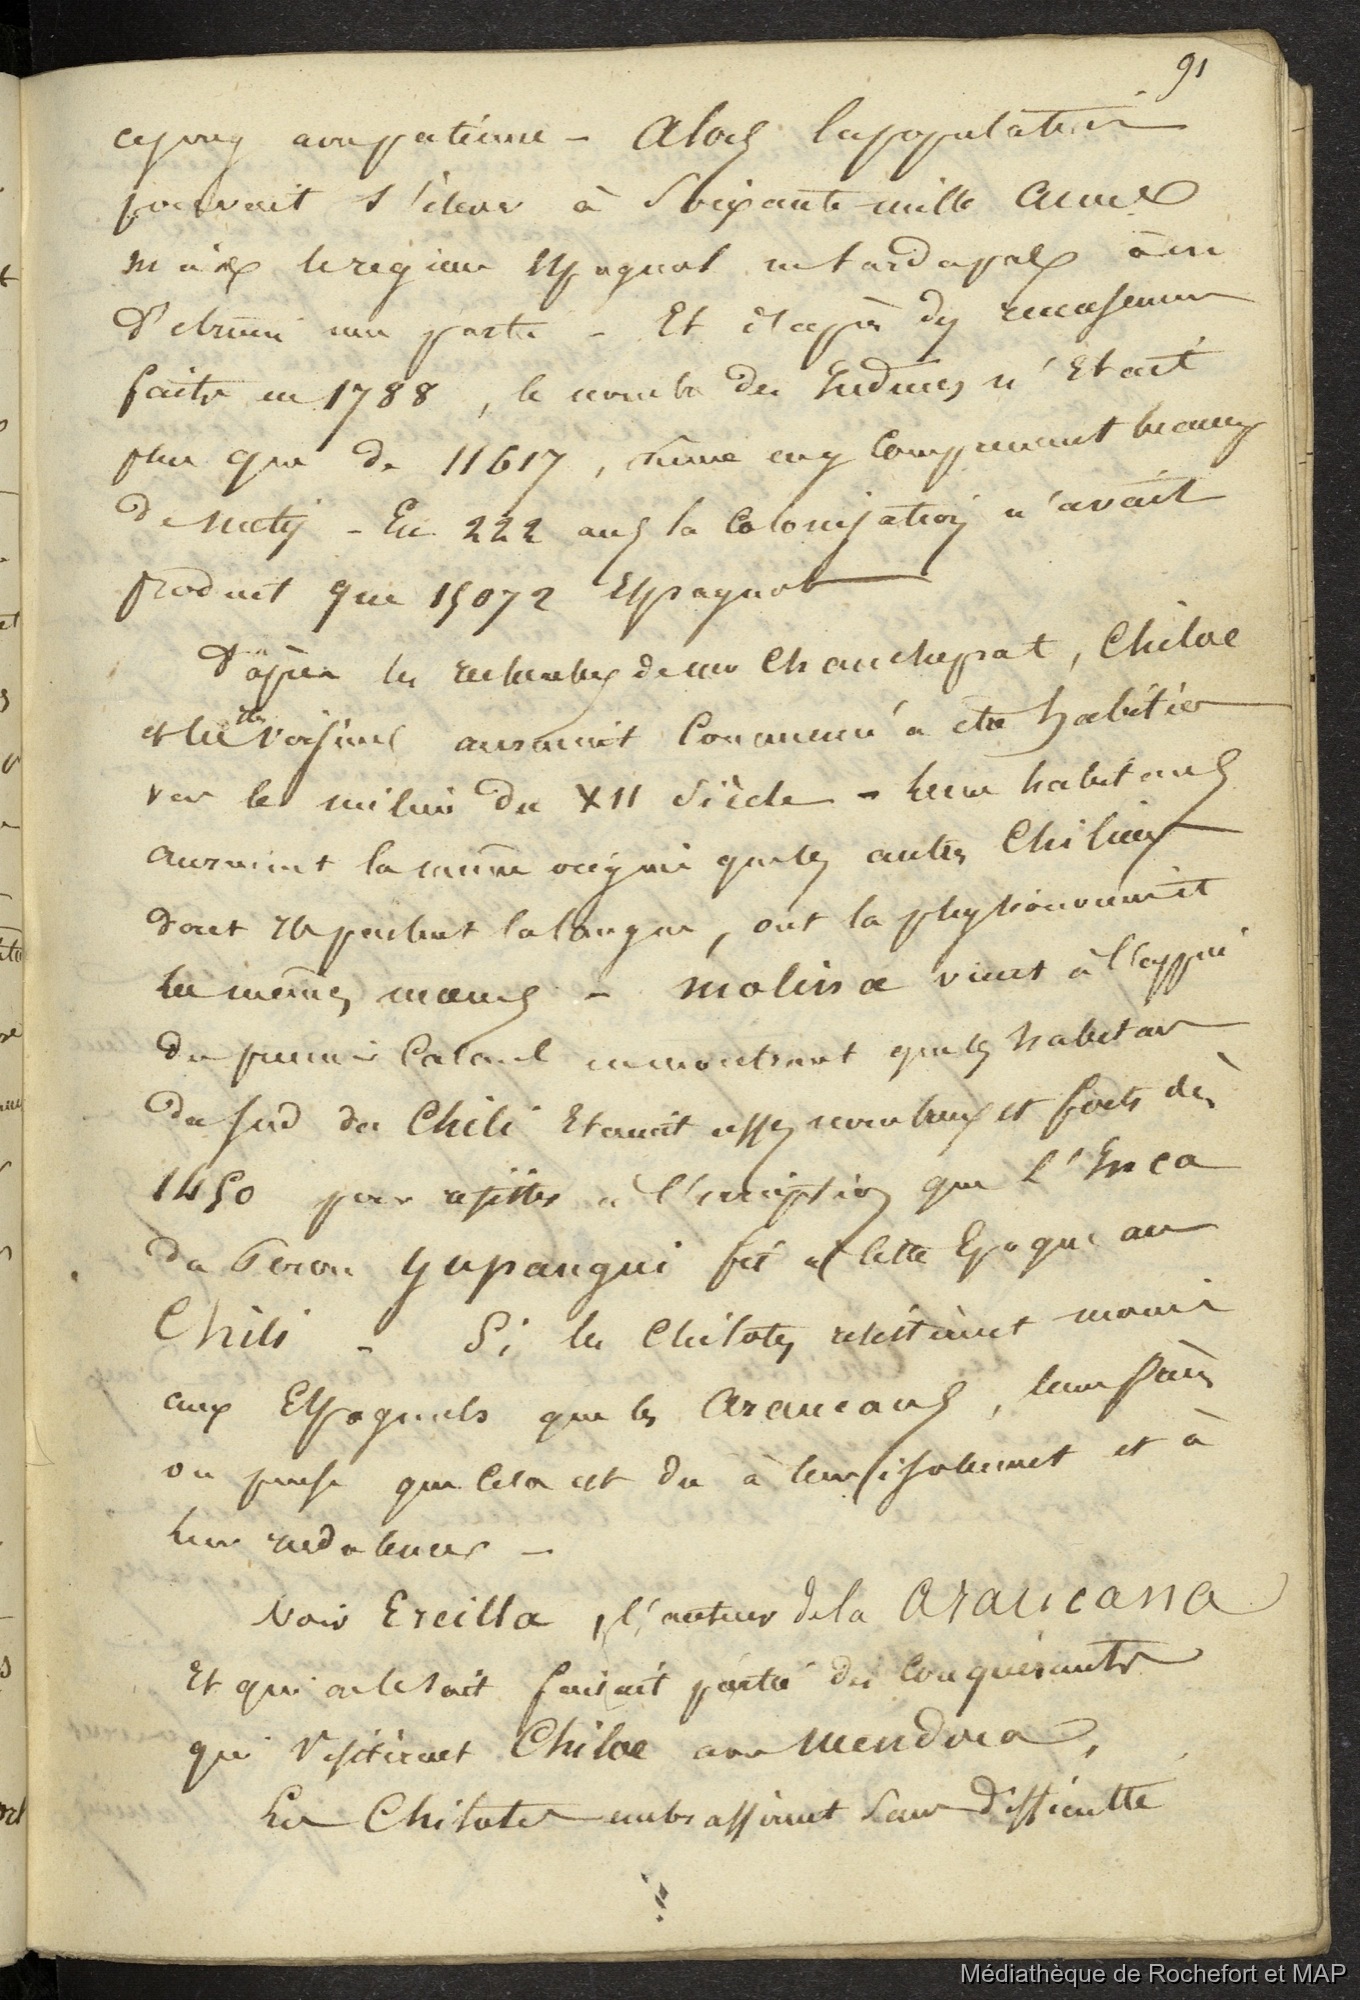 91
Alors la population
pouvait s'élever à Soixante-mille ames
mais le regime Espagnol ne tarda pas à en
détruire une partie - Et d'après des recensemens
faits en 1788, le nombre des Indiens n'Etait
plus que de 11617, même en y comprenant beaucoup
de métis - En 222 ans la Colonisation n'avait
produit que 15072 Espagnols
D'après les recherches de mr Chaucheprat, Chiloe
et les iles voisines auraient Commencé à etre habitées
vers le milieu du XII Siècle - Leurs habitans
auraient la même origine que les autres Chiliens
dont ils parlent la langue, ont la physionomie et
les mêmes mœurs - Molina vient à l'appui
du premier Calcul en montrant que les habitans
du sud du Chili Etaient assez nombreux et forts dès
1450 pour résister à l'irruption que l'Inca
du Perou Yupangui fit à Cette Epoque au
Chili - Si les Chilotes résistèrent moins
aux Espagnols que les Araucans, leurs Pères
on pense que Cela est du à leur isolement et à
leur indolence -
Voir Ercilla, l'auteur de la Araucana
Et qui faisait partie des Conquérants
qui Visitèrent Chiloe avec Mendoca,
Les Chilotes embrassèrent sans difficulté
Médiathèque de Rochefort et MAP